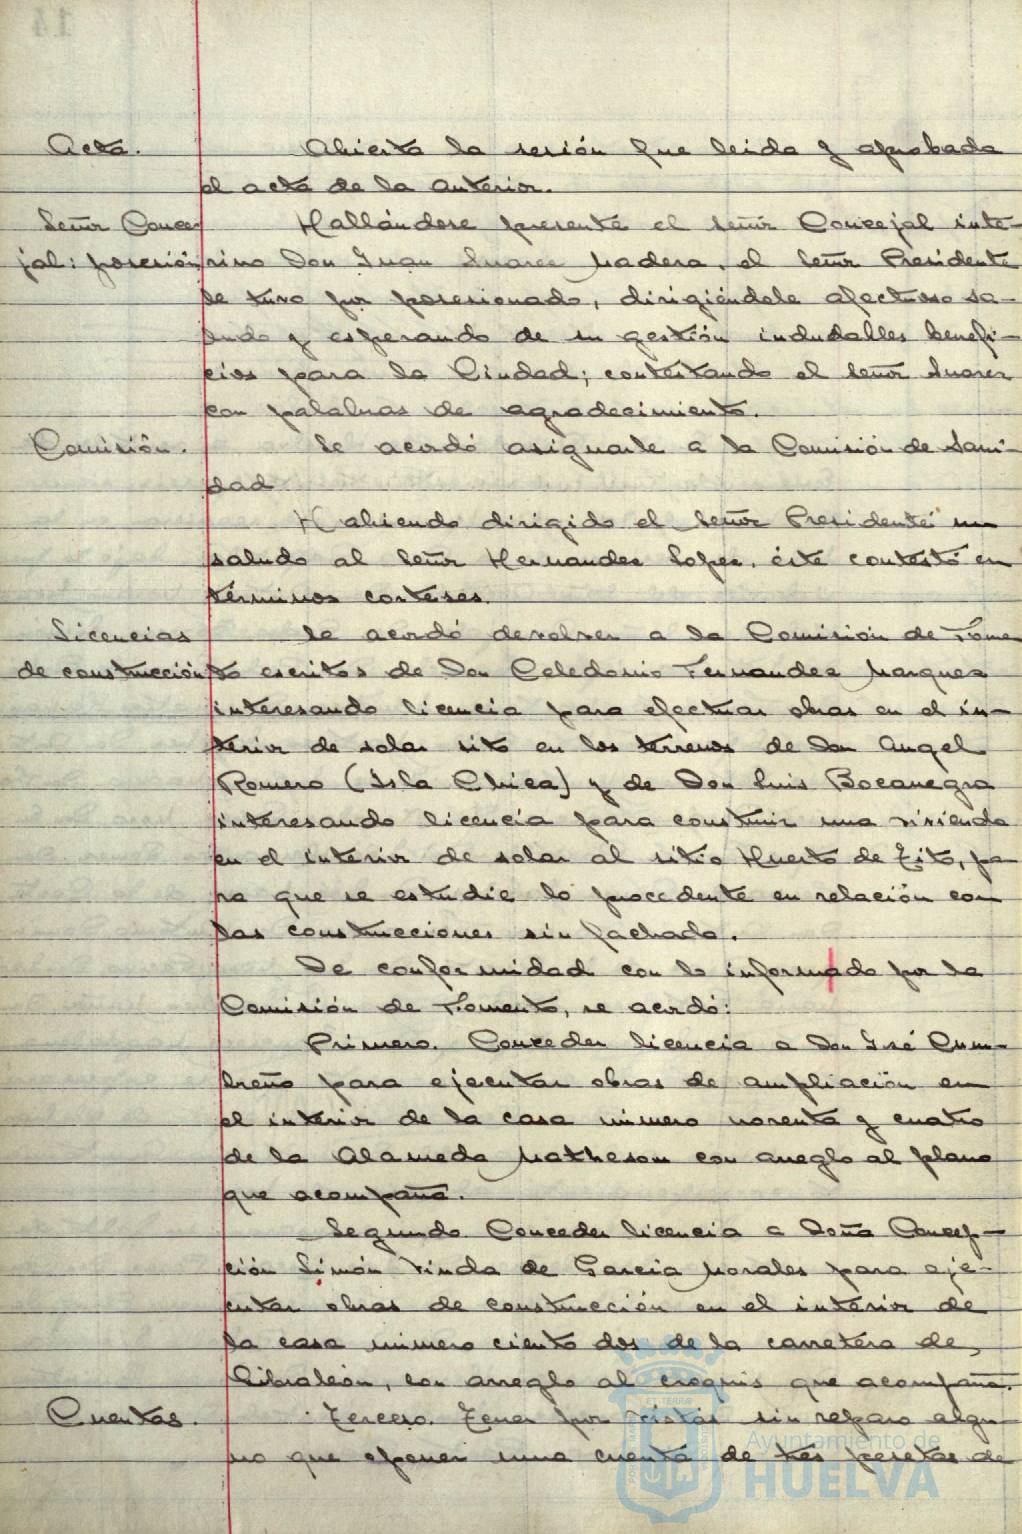 Acta. Abierta la sesión fue leida y aprobada
el acta de la anterior.
Señor Conce- Hallándose presente el señor Concejal inte-
jal: posesión rino Don Juan Suarez Madera, el Señor Presidente
le tuvo por posesionado, dirigiéndole afectuoso sa-
ludo y esperando de su gestión indudables benefi-
cios para la Ciudad; contestando el señor Suarez
con palabras de agradecimiento.
Comisión. Se acordó asignarle a la Comisión de Sani-
dad
Habiendo dirigido el Señor Presidente un
saludo al Señor Hernandez Lopez, éste contestó en
términos corteses.
Licencias Se acordó devolver a la Comisión de Fomen
de construcción to escritos de Don Celedonio Fernandez Marquez
interesando licencia para efectuar obras en el in-
terior de solar sito en los terrenos de Don Angel
Romero (Isla Chica) y de Don Luis Bocanegra
interesando licencia para construir una vivienda
en el interior de solar al sitio Huerto de Tito, pa
ra que se estudie lo procedente en relación con
las construcciones sin fachada.
De conformidad con lo informado por la
Comisión de Fomento, se acordó:
Primero. Conceder licencia a Don José Cum-
breño para ejecutar obras de ampliación en
el interior de la casa número noventa y cuatro
de la Alameda Matheson con arreglo al plano
que acompaña.
Segundo. Conceder licencia a Doña Concep-
ción Simón Viuda de Garcia Morales para eje-
cutar obras de construcción en el interior de
la casa número ciento dos de la carretera de
Gibraleón, con arreglo al croquis que acompaña.
Cuentas. Tercero. Tener por vistas sin reparo algu-
no que oponer una cuenta de tres pesetas de
Ayuntamiento de
HUELVA